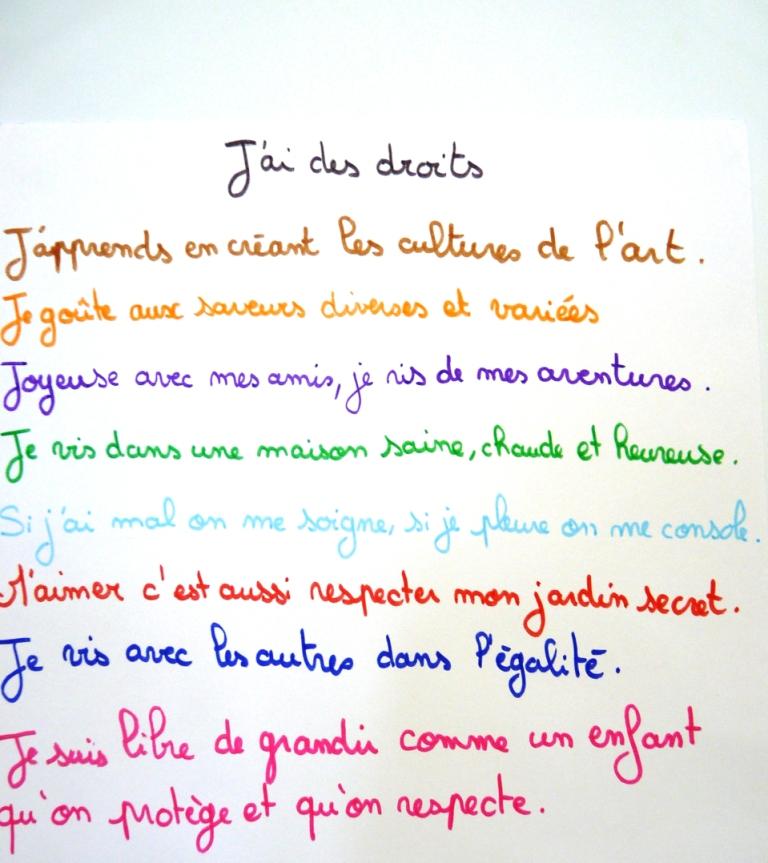 J'ai des droits
J'apprends en créant les cultures de l'art.
Je goûte aux saveurs diverses et variées
Joyeuse avec mes amis, je ris de mes aventures.
Je vis dans une maison saine, chaude et heureuse.
Si j'ai mal on me soigne, si je pleure on me console.
M'aimer c'est aussi respecter mon jardin secret.
Je vis avec les autres dans l'égalité.
Je suis libre de grandir comme un enfant
qu'on protège et qu'on respecte.